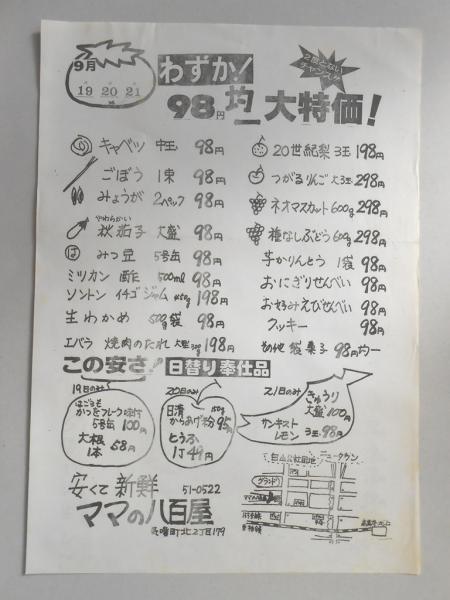 9月
19 20 21
わずか!
2度とない
チャンス
98円均一大特価!
キャベツ 中玉 98円
ごぼう 1束 98円
みょうが 2パック 98円
やわらかい
秋茄子 大盛 98円
みつ豆 5号缶 98円
ミツカン 酢 500ml 98円
ソントン イチゴジャム 198円
生わかめ 500g袋 98円
エバラ 焼肉のたれ 198円
20世紀梨 3玉 198円
つがるりんご 大3玉 298円
ネオマスカット 600g 298円
種なしぶどう 600g 298円
芋かりんとう 1袋 98円
おにぎりせんべい 98円
お好みえびせんべい 98円
クッキー 98円
その他 袋菓子 98円均一
この安さ! 日替り奉仕品
19日のみ
はごろも
かつをフレーク味付
5号缶 100円
大根
1本 58円
20日のみ
日清 150g
からあげ粉 95円
とうふ
1丁 49円
21日のみ
きゅうり
大盛 100円
サンキスト
レモン 3玉 98円
安くて新鮮 51-0522
ママの八百屋
曙町北2丁目179
ニュータウン
グランド